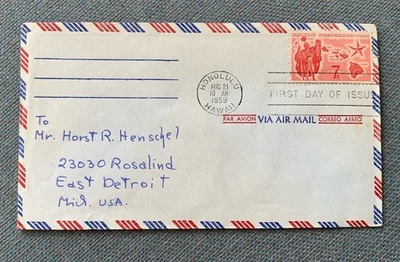 HONOLULU
AUG 21
10 AM
1959
HAWAII
7¢
FIRST DAY OF ISSUE
PAR AVION VIA AIR MAIL CORREO AEREO
To
Mr. Horst R. Henschel
23030 Rosalind
East Detroit
Mich. USA.